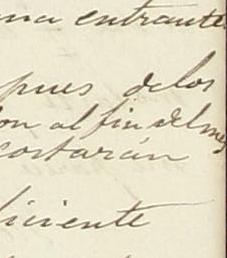 una entrante
pues delos
on al fin del mes
cortarán
iciente